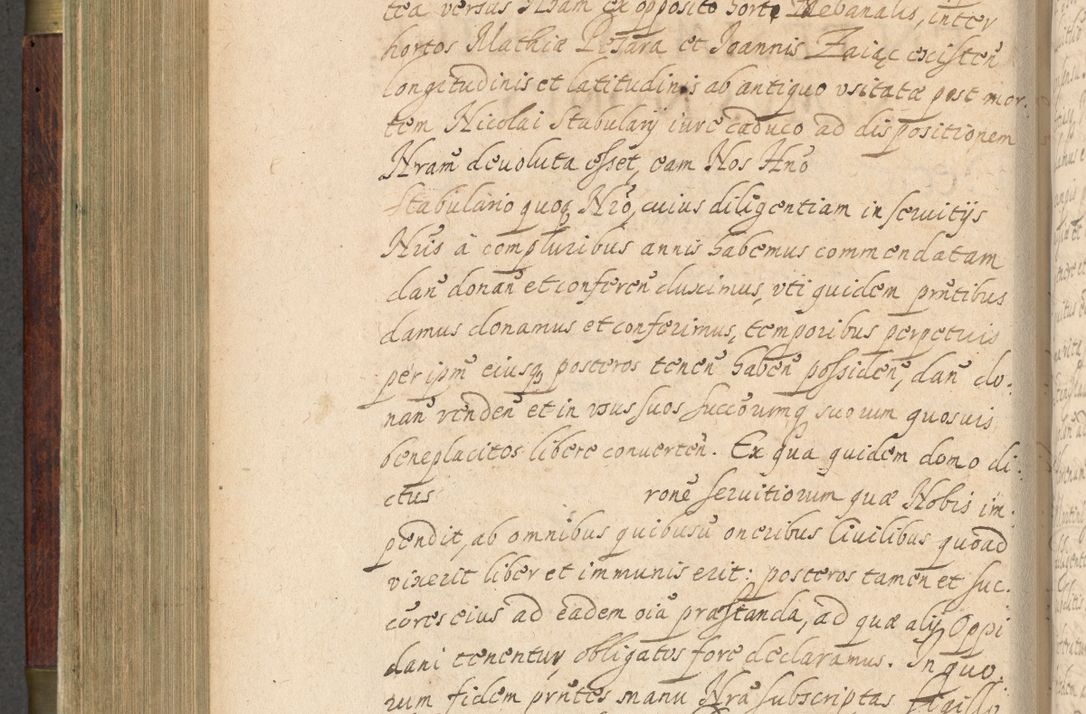 tea versus Nram ex opposito horti Plebanalis, inter
hortos Mathiæ Pekara et Joannis Zaiąc existen̄
longitudinis et latitudinis ab antiquo vsitatæ post mor-
tem Nicolai Stabularij iure caduco ad dispositionem
Nram deuoluta esset, eam Nos Hnō
Stabulario quoq Nrō, cuius diligentiam in seruitijs
Nris à compluribus annis habemus commendatam
dan̄ donan̄ et conferen̄ duximus, vti quidem prntibus
damus donamus et conferimus, temporibus perpetuis
per ipm̄ eiusq posteros tenen̄ haben̄ possiden̄, dan̄ do-
nan̄ venden̄ et in vsus suos succorumq suorum quosuis
beneplacitos libere conuerten̄. Ex qua quidem domo di-
ctus rone seruitiorum quæ Nobis im-
pendit, ab omnibus quibusū oneribus Ciuilibus quoad
vixerit liber et immunis erit: posteros tamen et suc-
cores eius ad eadem oīa præstanda, ad quæ alij Oppi
dani tenentur, obligatos fore declaramus. In quo
rum fidem prntes manu Nra subscriptas